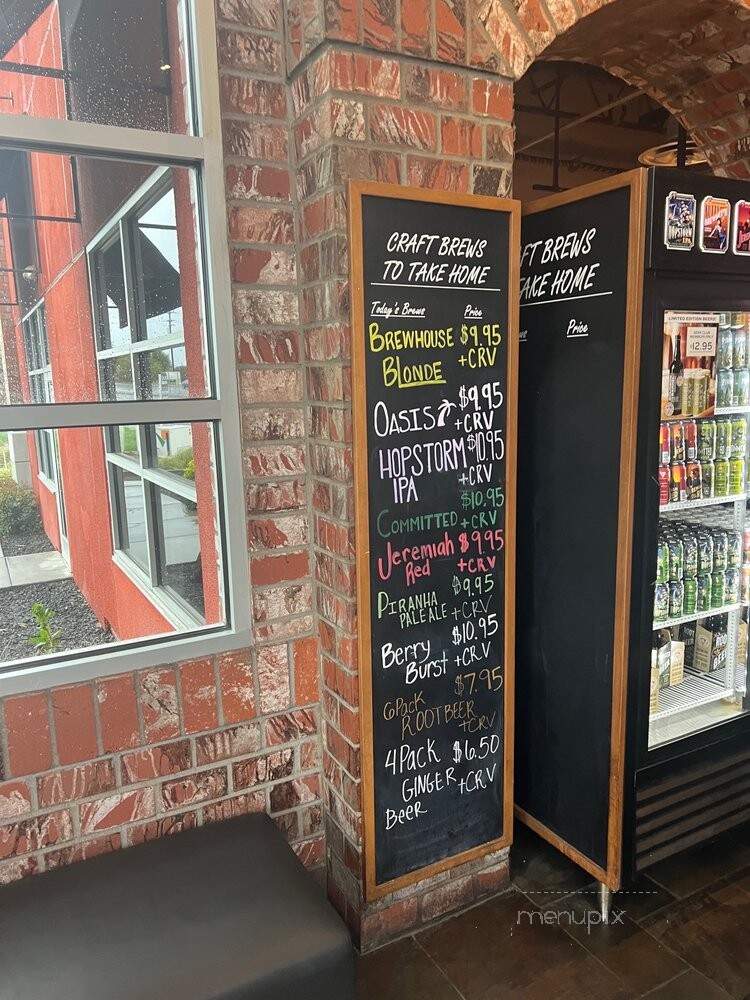 CRAFT BREWS
TO TAKE HOME
Today's Brews Price
BREWHOUSE $9.95
BLONDE +CRV
OASIS $9.95
+CRV
HOPSTORM $10.95
IPA +CRV
$10.95
COMMITTED +CRV
Jeremiah $9.95
Red +CRV
PIRANHA $9.95
PALE ALE +CRV
Berry $10.95
Burst +CRV
6 Pack $7.95
ROOT BEER +CRV
4 PACK $6.50
GINGER +CRV
Beer
FT BREWS
TAKE HOME
Price
HOPSTORM
LIMITED EDITION BEERS!
$12.95
ROOT
BEER
menupix